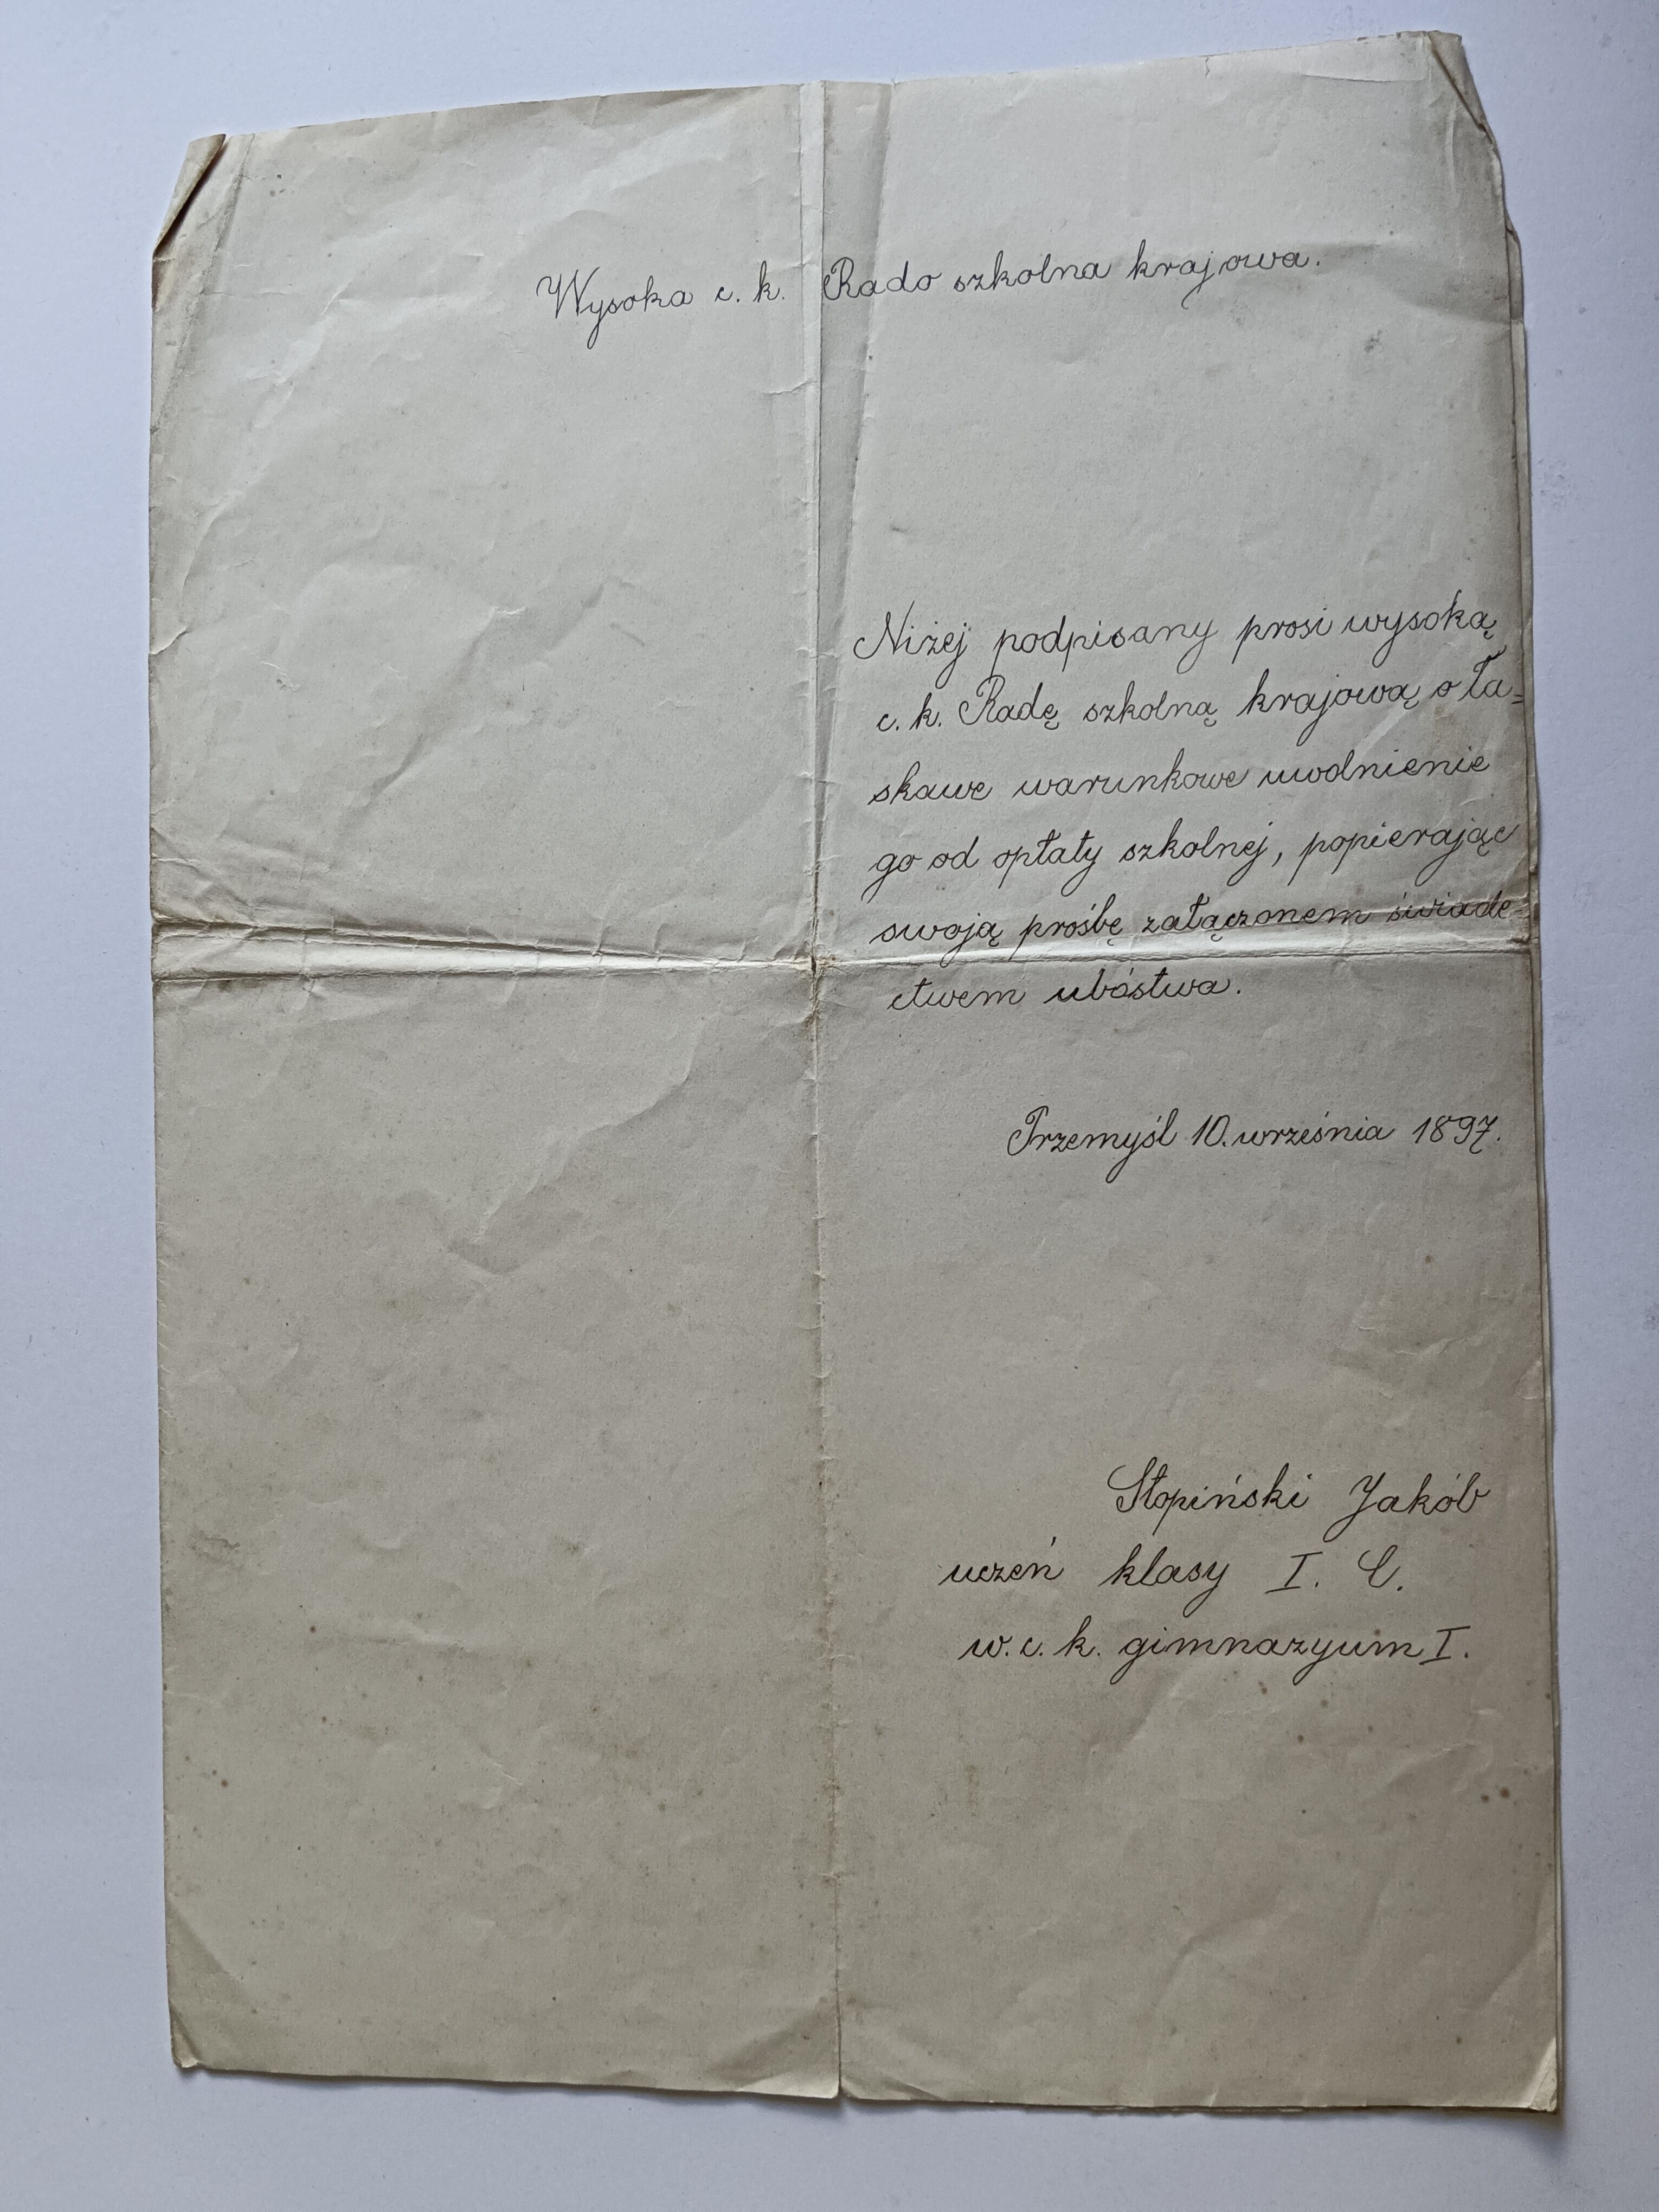 Wysoka c. k. Rado szkolna krajowa.
Niżej podpisany prosi wysoką
c. k. Radę szkolną krajową o ła=
skawe warunkowe uwolnienie
go od opłaty szkolnej, popierając
swoją prośbę załączonem świade=
ctwem ubóstwa.
Przemyśl 10. września 1897.
Stopiński Jakób
uczeń klasy I. C.
w. c. k. gimnazyum I.